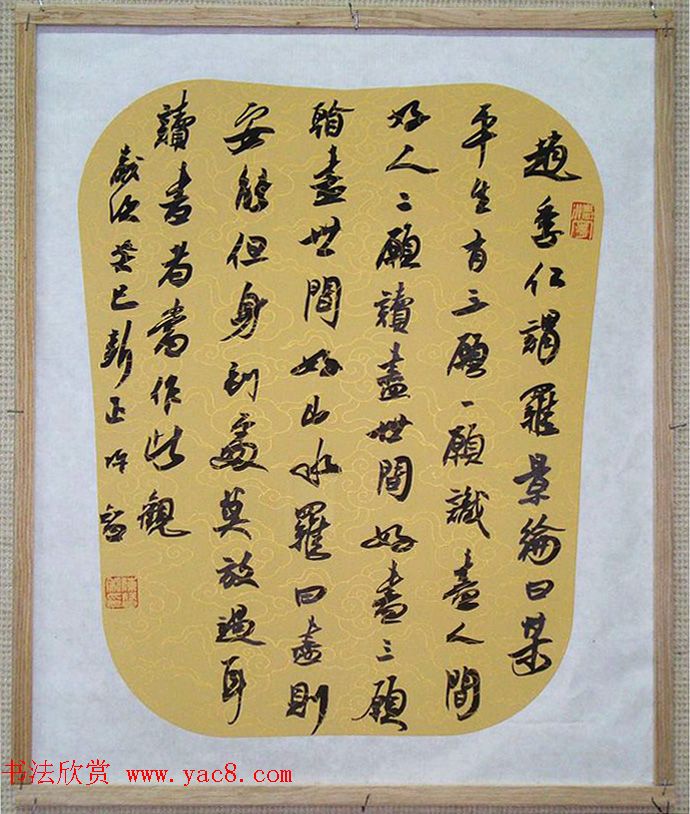 趙季仁謂羅景綸曰某
平生有三願一願識盡人間
好人二願讀盡世間好書三願
看盡世間好山水羅曰盡則
安能但身到處莫放過耳
讀書者當作此觀
歲次癸巳新正許
书法欣赏 www.yac8.com